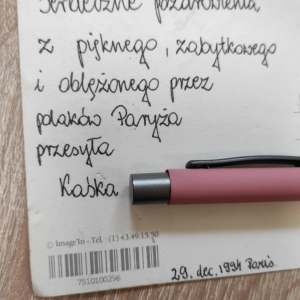 Serdeczne pozdrowienia
z pięknego, zabytkowego
i oblężonego przez
polaków Paryża
przesyła
Kaśka
© Image'In - Tél : (1) 43.49.15.50
7510100296
29. dec. 1994 Paris